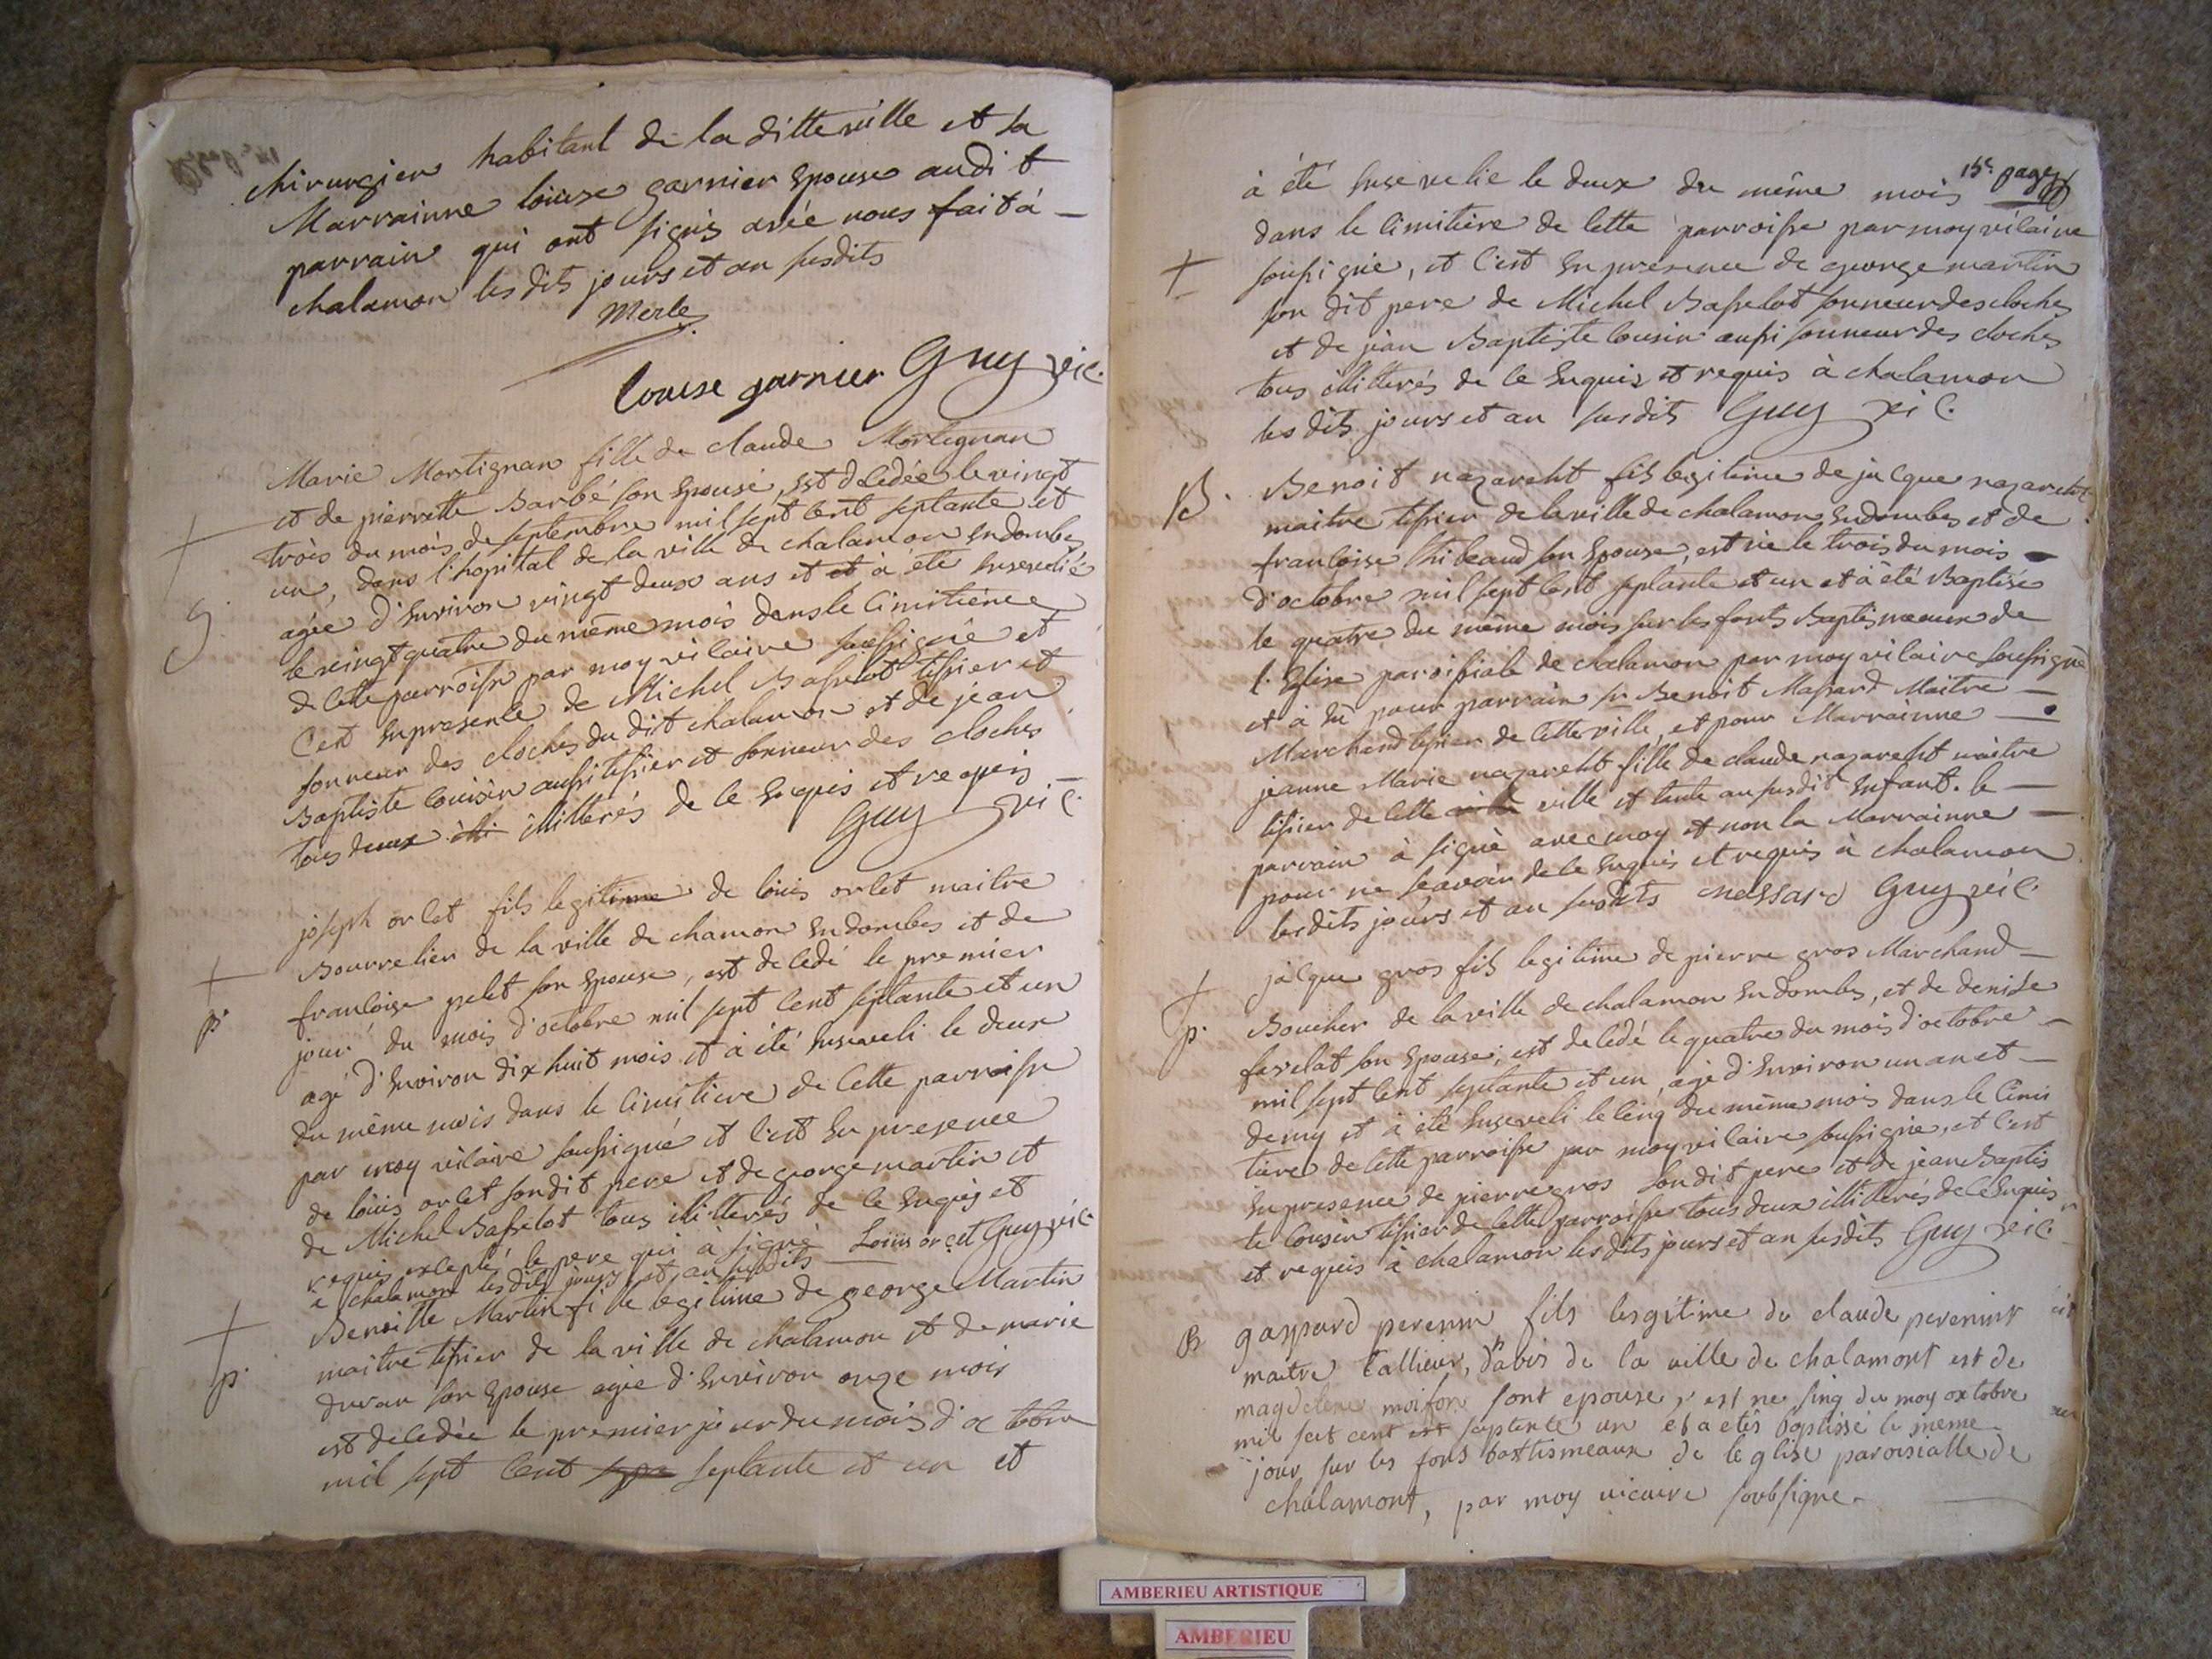 chirurgien habitant de la ditte ville et sa
Marrainne loüise garnier Epouse audit
parrain qui ont signés avéc nous fait à —
chalamon les dits jours et an susdits
Merle
Louise garnier Guy vic.
Marie Mortignan fille de claude Mortignan
et de pierrette Barbé son Epouse, est decedée le vingt
trois du mois de septembre mil sept cent septante et
un, dans l'hopital de la ville de chalamon En dombes
agée d'Environ vingt deux ans et et à été Ensevelie
le vingt quatre du même mois dans le cimitiére
de cette parroisse par moy vicaire soussigné et
c'est En presence de Michel Basselot tissier et
sonneur des cloches du dit chalamon et de jean
Baptiste cousin aussi tissier et sonneur des cloches
tous deux illitterés de ce Enquis et requis —
Guy vic.
joseph orlet fils legitime de loüis orlet maitre
Bourrelier de la ville de chamon En dombes et de
francoise pelet son Epouse, est decedé le premier
jour du mois d'octobre mil sept cent septante et un
agé d'Environ dix huit mois et à été Enseveli le deux
du même mois dans le cimitiere de cette parroisse
par moy vicaire soussigné et c'est En presence
de loüis orlet son dit pere et de george martin et
de Michel Basselot tous illitterés de ce Enquis et
requis excepté le pere qui à signé Loüis orcet Guy vic.
à chalamon les dits jours et an susdits
Benoitte Martin fille legitime de george Martin
maitre tissier de la ville de chalamon et de marie
son Epouse agée d'Environ onze mois
est decedée le premier jour du mois d'octobre
mil sept cent septante et un et
15e page
à été Ensevelie le deux du même mois
dans le cimitiére de cette parroisse par moy vicaire
soussigné, et c'est En presence de george martin
son dit pere de Michel Basselot sonneur des cloches
et de jean Baptiste cousin aussi sonneur des cloches
tous illitterés de ce Enquis et requis à chalamon
les dits jours et an susdits Guy vic.
B. Benoit nazareht fils legitime de jacque nazareht
maitre tissier de la ville de chalamon En dombes et de
francoise thibeaud son Epouse, est né le trois du mois
d'octobre mil sept cent septante et un et à été Baptisé
le quatre du même mois sur les fonts Baptismeaux de
l'Eglise paroissiale de chalamon par moy vicaire soussigné
et à Eu pour parrain sr Benoit Massard Maitre —
Marchand tissier de cette ville, et pour Marrainne —
jeanne Marie nazareht fille de claude nazareht maitre
tissier de cette ville et tante au susdit Enfant. le —
parrain à signé avec moy et non la Marrainne —
pour ne sçavoir de ce Enquis et requis à chalamon
les dits jours et an susdits massard Guy vic.
jacque gros fils legitime de pierre gros Marchand —
p. Boucher de la ville de chalamon En dombes, et de denise
son Epouse, est decedé le quatre du mois d'octobre —
mil sept cent septante et un, agé d'Environ un an et —
demy et à été Enseveli le cinq du même mois dans le cimi
tiere de cette parroisse par moy vicaire soussigné, et c'est
En presence de pierre gros son dit pere et de jean Baptis
te cousin tissier de cette parroisse tous deux illitterés de ce Enquis
et requis à chalamon les dits jours et an susdits Guy vic.
B gaspard perenin fils lesgitime de claude perenint
maitre tallieur, d'abis de la ville de chalamont est de
magdelene moifon sont epouse, est ne sing du moy octobre
mil set cent septente un et a etés baptissé le meme
jour sur les fons battismeaux de leglise paroisialle de
chalamont, par moy vicaire soubsigne.
AMBERIEU ARTISTIQUE
AMBERIEU